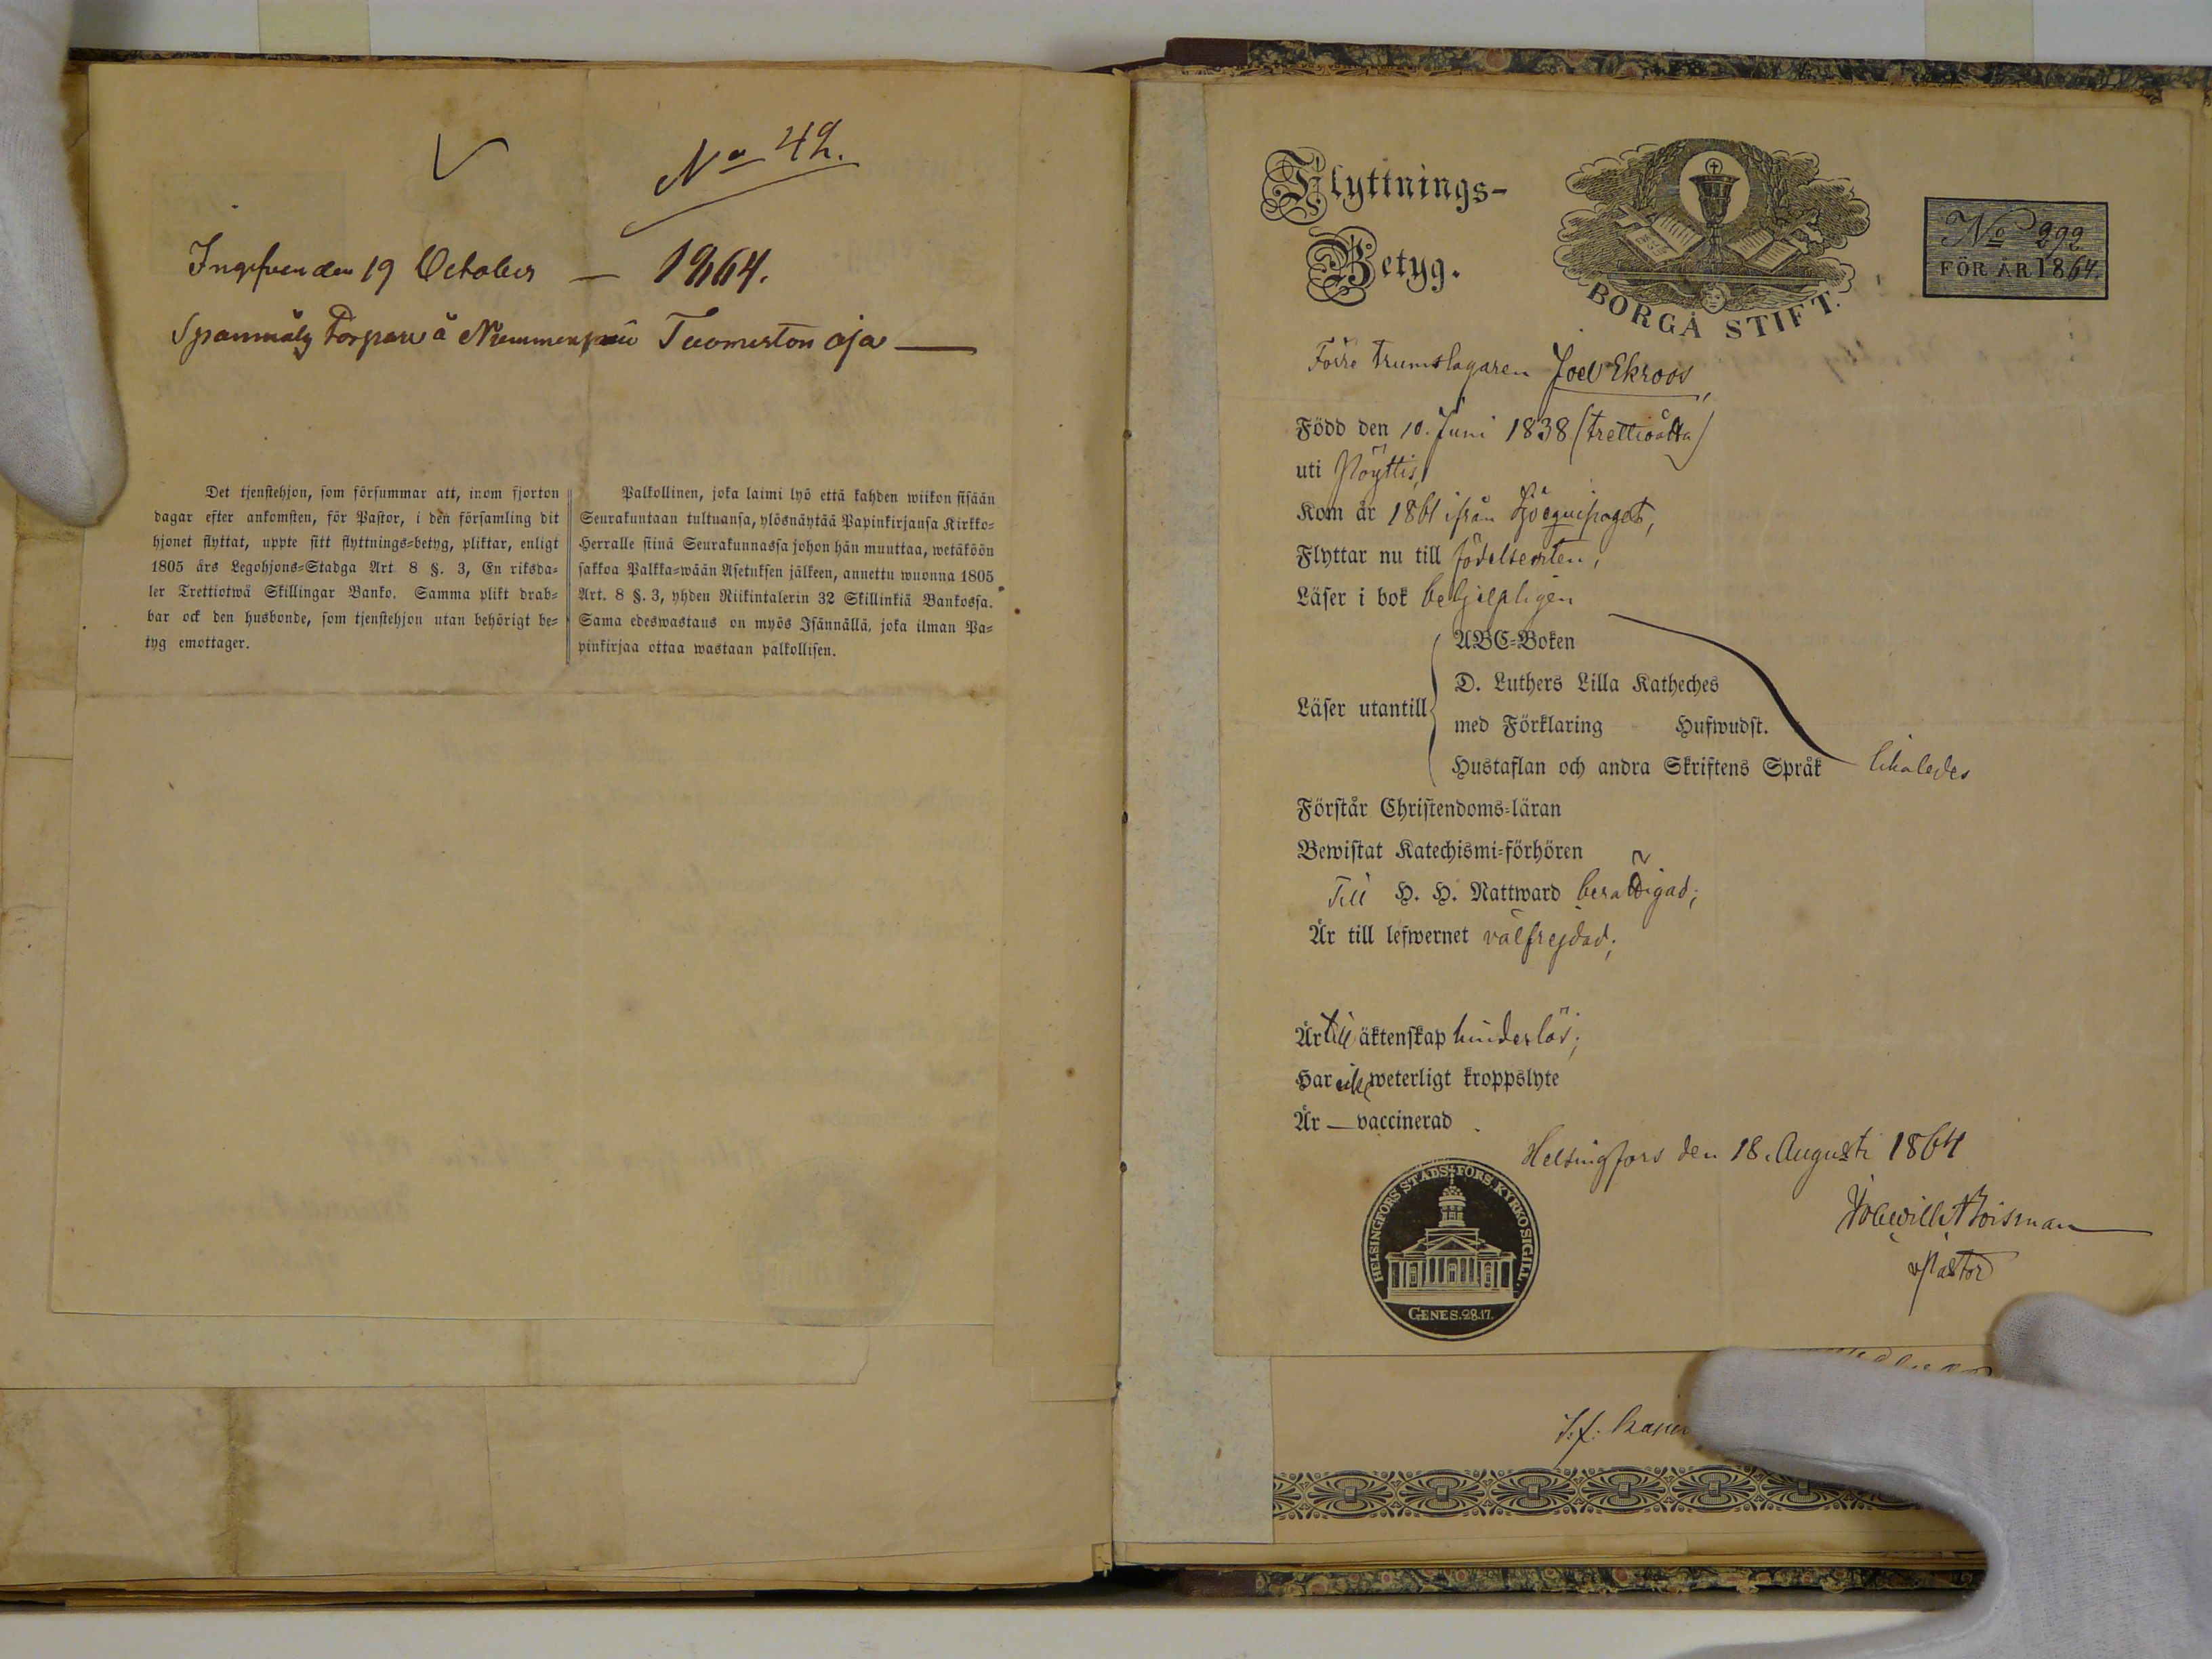 No 42.
Ingifven den 19 October — 1864.
Torpare å Tuomiston oja —
Det tjenstehjon, som försummar att, inom fjorton
dagar efter ankomsten, för Pastor, i den församling dit
hjonet flyttat, uppte sitt flyttnings=betyg, pliktar, enligt
1805 års Legohjons=Stadga Art 8 §. 3, En riksda=
ler Trettiotwå Skillingar Banko. Samma plikt drab=
bar ock den husbonde, som tjenstehjon utan behörigt be=
tyg emottager.
Palkollinen, joka laimi lyö että kahden wiikon sisään
Seurakuntaan tultuansa, ylösnäytää Papinkirjansa Kirkko=
Herralle siinä Seurakunnassa johon hän muuttaa, wetäköön
sakkoa Palkka=wään Asetuksen jälkeen, annettu wuonna 1805
Art. 8 §. 3, yhden Riikintalerin 32 Skillinkiä Bankossa.
Sama edeswastaus on myös Isännällä, joka ilman Pa=
pinkirjaa ottaa wastaan palkollisen.
Flyttnings-
Betyg.
BORGÅ STIFT.
No 292
FÖR ÅR 1864.
Förre Trumslagaren Joel Ekroos,
Född den 10. Juni 1838 (trettioåtta)
uti Pöyttis,
Kom år 1861 ifrån Sjöequipaget,
Flyttar nu till födelseorten,
Läser i bok behjelpligen
Läser utantill
ABC=Boken
D. Luthers Lilla Katheches
med Förklaring Hufwudst.
Hustaflan och andra Skriftens Språk likaledes
Förstår Christendoms=läran
Bewistat Katechismi=förhören
Till H. H. Nattward berättigad;
Är till lefwernet välfrejdad;
Är till äktenskap hinderlös;
Har icke weterligt kroppslyte
Är — vaccinerad
Helsingfors den 18. Augusti 1864
Boisman
v Pastor
HELSINGFORS STADS FÖRS. KYRKO SIGILL.
GENES. 28.17.